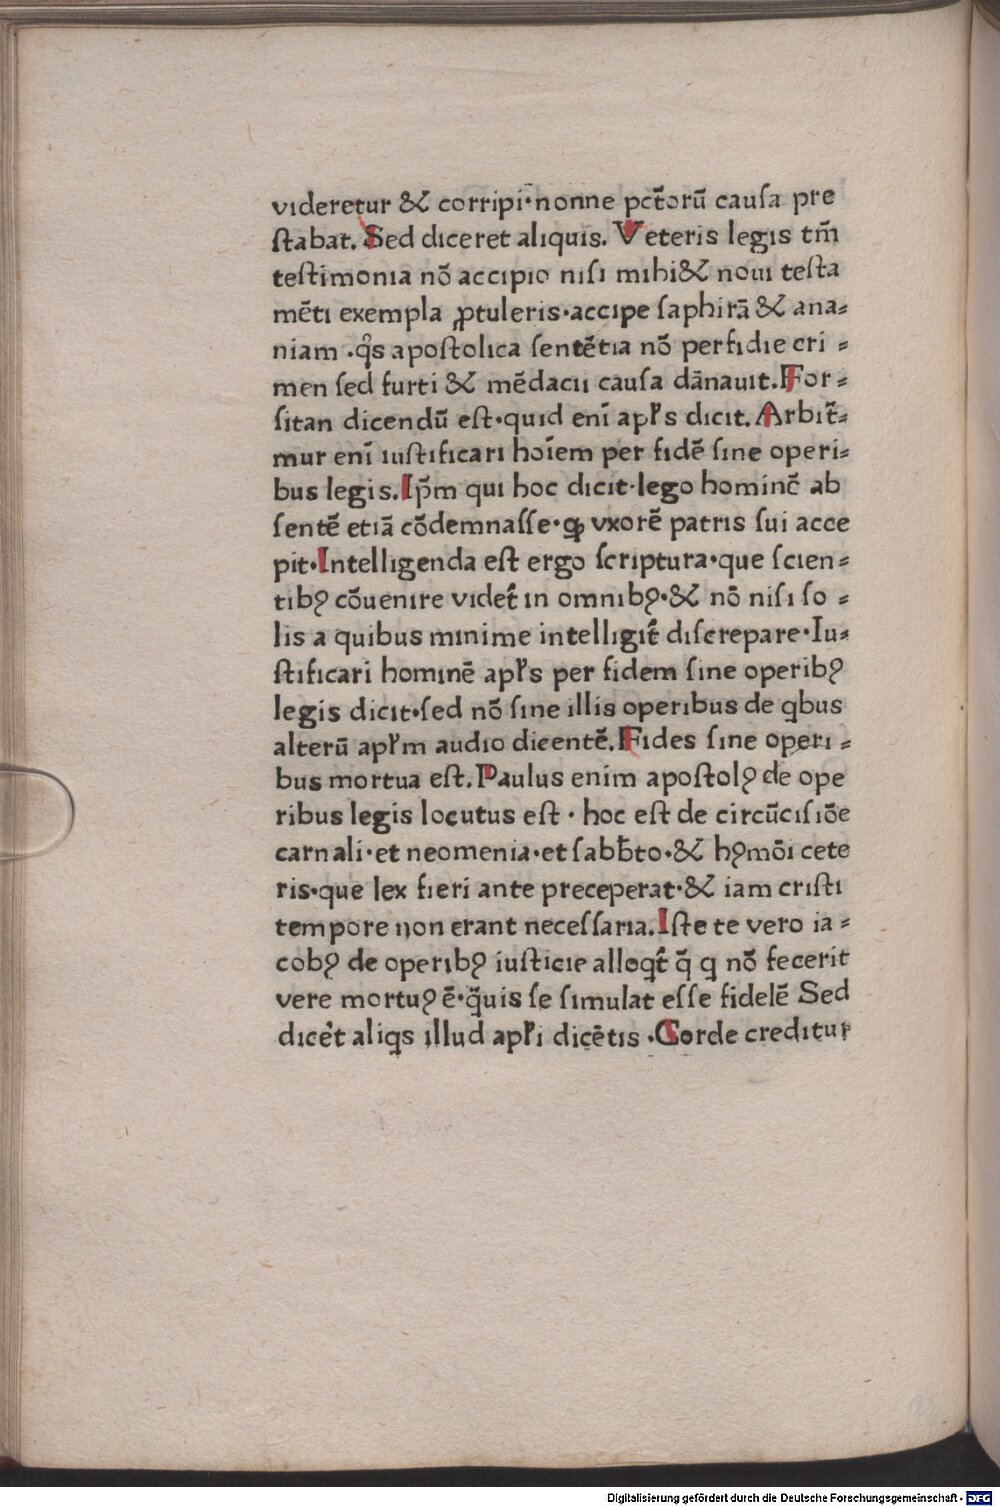 videretur & corripi·nonne pct̄orū cauſa pre
ſtabat. Sed diceret aliquis. Veteris legis tm̄
teſtimonia nō accipio niſi mihi& noui teſta
mēti exempla ꝓtuleris·accipe ſaphirā & ana⸗
niam ·qͦs apoſtolica ſentētia nō perfidie cri ⸗
men ſed furti & mēdacii cauſa dānauit. For⸗
ſitan dicendū eſt·quid enī apl's dicit. Arbit̄⸗
mur enī iuſtificari hoīem per fidē ſine operi⸗
bus legis. Ip̄m qui hoc dicit·lego hominē ab
ſentē etiā cōdemnaſſe·ꝙ vxorē patris ſui acce
pit·Intelligenda eſt ergo ſcriptura·que ſcien⸗
tibꝰ cōuenire videt̄ in omnibꝰ·& nō niſi ſo ⸗
lis a quibus minime intelligit̄ diſcrepare·Iu⸗
ſtificari hominē apl's per fidem ſine operibꝰ
legis dicit·ſed nō ſine illis operibus de qbus
alterū apl'm audio dicentē. Fides ſine operi ⸗
bus mortua eſt. Paulus enim apoſtolꝰ de ope
ribus legis locutus eſt · hoc eſt de circūciſiōe
carnali·et neomenia·et ſabb̄to·& hꝰmōi cete
ris·que lex fieri ante preceperat·& iam criſti
tempore non erant neceſſaria. Iſte te vero ia ⸗
cobꝰ de operibꝰ iuſticie alloqt̄ q̄ q nō fecerit
vere mortuꝰ ē·q̄uis ſe ſimulat eſſe fidelē Sed
dicet̓ aliqs illud apl'i dicētis ·Corde creditur
Digitalisierung gefördert durch die Deutsche Forschungsgemeinschaft · DFG